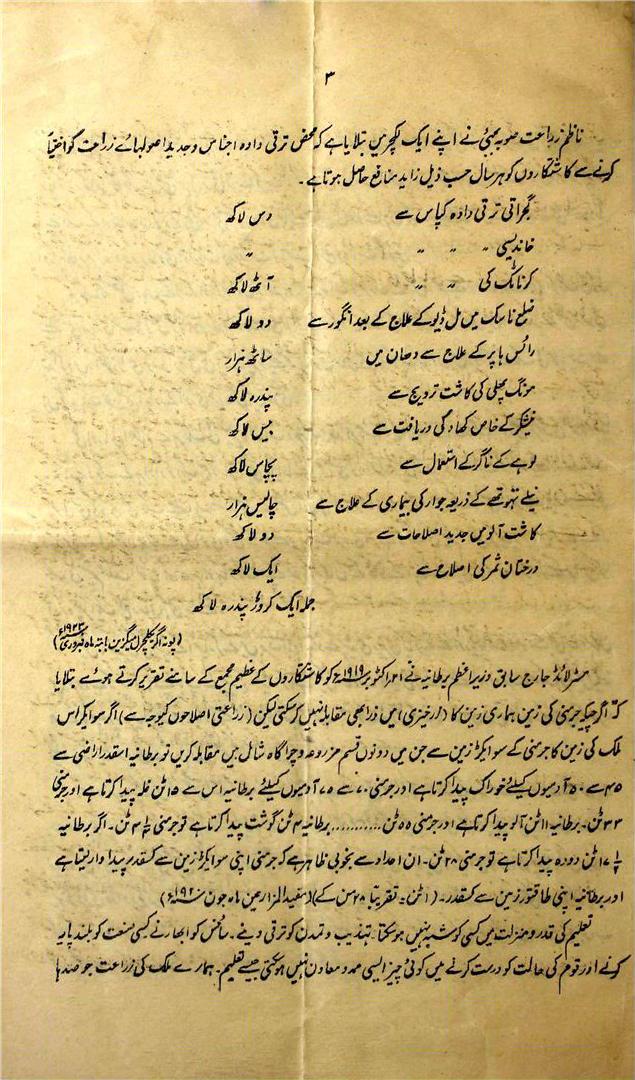 ۳
ناظم زراعت صوبہ بمبئی نے اپنے ایک لکچر میں بتلایا ہے کہ محض ترقی دادہ اجناس و جدید اصولہائے زراعت کو اختیار
کرنے سے کاشتکاروں کو ہر سال حسب ذیل زاید منافع حاصل ہوتا ہے۔
گجراتی ترقی دادہ کپاس سے دس لاکھ
خاندیسی ״ ״ ״ ״
کرناٹک کی ״ ״ آٹھ لاکھ
ضلع ناسک میں مل ڈیو کے علاج کے بعد انگور سے دو لاکھ
رائس ہاپر کے علاج سے دھان میں ساٹھ ہزار
مونگ پھلی کی کاشت ترویج سے پندرہ لاکھ
نیشکر کے خاص کھاد کی دریافت سے بیس لاکھ
لوہے کے ناگر کے استعمال سے پچاس لاکھ
نیلے تھوتھے کے ذریعہ جوار کی بیماری کے علاج سے چالیس ہزار
کاشت آلو میں جدید اصلاحات سے دو لاکھ
درختان ثمر کی اصلاح سے ایک لاکھ
جملہ ایک کروڑ پندرہ لاکھ
(پونہ اگریکلچرل میگزین بابتہ ماہ فبروری ۱۹۲۳ء)
مسٹر لائڈ جارج سابق وزیر اعظم برطانیہ نے ۲۱ اکٹوبر ۱۹۱۹ء کو کاشتکاروں کے عظیم مجمع کے سامنے تقریر کرتے ہوئے بتلایا
کہ اگرچیکہ جرمنی کی زمین ہماری زمین کا (زرخیزی) میں ذرا بھی مقابلہ نہیں کرسکتی لیکن (زراعتی اصلاحوں کیوجہ سے) اگر سو ایکر اس
ملک کی زمین کا جرمنی کے سو ایکڑ زمین سے جن میں دونوں قسم مزروعہ و چراگاہ شامل ہیں مقابلہ کریں تو برطانیہ اسقدر اراضی سے
۴۵ سے ۵۰ آدمیوں کیلئے خوراک پیدا کرتا ہے اور جرمنی ۷۰ سے ۷۵ آدمیوں کیلئے برطانیہ اس سے ۱۵ ٹن غلہ پیدا کرتا ہے اور جرمنی
۳۳ ٹن۔ برطانیہ ۱۱ ٹن آلو پیدا کرتا ہے اور جرمنی ۵۵ ٹن ........... برطانیہ ۴ ٹن گوشت پیدا کرتا ہے تو جرمنی ۴ ٹن۔ اگر برطانیہ
۱۷ ٹن دودہ پیدا کرتا ہے تو جرمنی ۲۸ ٹن۔ ان اعداد سے بخوبی ظاہر ہے کہ جرمنی اپنی سو ایکڑ زمین سے کسقدر پیداوار لیتا ہے
اور برطانیہ اپنی طاقتور زمین سے کسقدر۔ (۱ ٹن = تقریباً ۲۸ من کے) (مفید المزارعین ماہ جون ۱۹۲۰ء)
تعلیم کی قدر و منزلت میں کسی کو شبہ نہیں ہوسکتا۔ تہذیب و تمدن کو ترقی دینے۔ سائنس کو ابھارنے کسی صنعت کو بلند پایہ
کرنے اور قوم کی حالت کو درست کرنے میں کوئی چیز ایسی ممد و معاون نہیں ہوسکتی جیسے تعلیم۔ ہمارے ملک کی زراعت جو صدہا